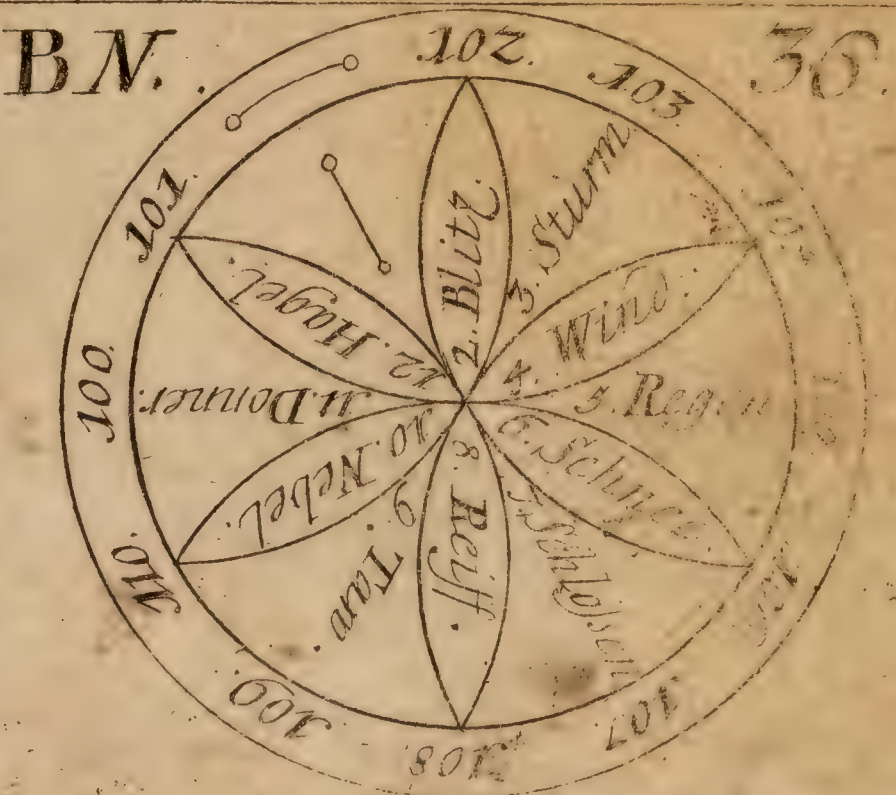 BN. 36.
102.
103.
107
108.
109.
110.
100.
101.
2. Blitz.
3. Sturm
4. Wind.
5. Regen
6. Schnee.
7. Schlossen
8. Reiff.
9. Taw.
10. Nebel.
11. Donner.
12. Hagel.